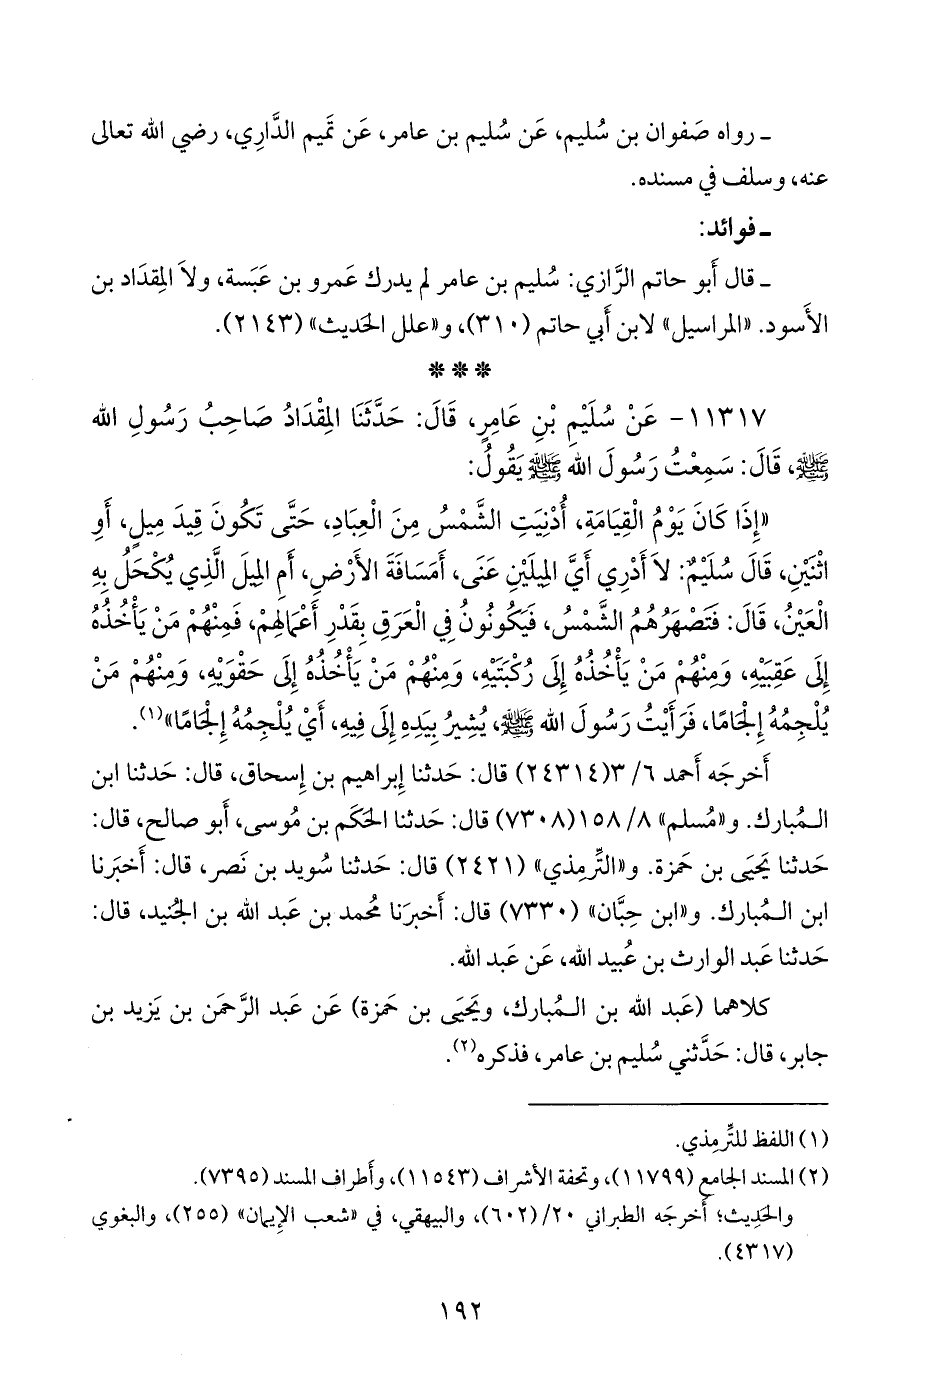 ـ رواه صَفوان بن سُليم، عَن سُليم بن عامر، عَن تَميم الدَّاري، رضي الله تعالى
عنه، وسلف في مسنده.
ـ فوائد:
ـ قال أَبو حاتم الرَّازي: سُليم بن عامر لم يدرك عَمرو بن عَبَسة، ولاَ المِقدَاد بن
الأَسود. «المراسيل» لابن أَبي حاتم (٣١٠)، و«علل الحَديث» (٢١٤٣).
***
١١٣١٧- عَنْ سُلَيْمِ بْنِ عَامِرٍ، قَالَ: حَدَّثَنَا المِقْدَادُ صَاحِبُ رَسُولِ الله
ﷺ، قَالَ: سَمِعْتُ رَسُولَ الله ﷺ يَقُولُ:
«إِذَا كَانَ يَوْمُ الْقِيَامَةِ، أُدْنِيَتِ الشَّمْسُ مِنَ الْعِبَادِ، حَتَّى تَكُونَ قِيدَ مِيلٍ، أَوِ
اثْنَيْنِ، قَالَ سُلَيْمٌ: لاَ أَدْرِي أَيَّ المِيلَيْنِ عَنَى، أَمَسَافَةَ الأَرْضِ، أَمِ المِيلَ الَّذِي يُكْحَلُ بِهِ
الْعَيْنُ، قَالَ: فَتَصْهَرُهُمُ الشَّمْسُ، فَيَكُونُونُ فِي الْعَرَقِ بِقَدْرِ أَعْمَالِهِمْ، فَمِنْهُمْ مَنْ يَأْخُذُهُ
إِلَى عَقِبَيْهِ، وَمِنْهُمْ مَنْ يَأْخُذُهُ إِلَى رُكْبَتَيْهِ، وَمِنْهُمْ مَنْ يَأْخُذُهُ إِلَى حَقْوَيْهِ، وَمِنْهُمْ مَنْ
يُلْجِمُهُ إِلْجَامًا، فَرَأَيْتُ رَسُولَ الله ﷺ، يُشِيرُ بِيَدِهِ إِلَى فِيهِ، أَيْ يُلْجِمُهُ إِلْجَامًا»(١).
أَخرجَه أَحمد ٦/ ٣(٢٤٣١٤) قال: حَدثنا إِبراهيم بن إِسحاق، قال: حَدثنا ابن
المُبارك. و«مُسلم» ٨/ ١٥٨(٧٣٠٨) قال: حَدثنا الحَكَم بن مُوسى، أَبو صالح، قال:
حَدثنا يَحيَى بن حَمزة. و«التِّرمِذي» (٢٤٢١) قال: حَدثنا سُويد بن نَصر، قال: أَخبَرنا
ابن المُبارك. و«ابن حِبَّان» (٧٣٣٠) قال: أَخبرَنا مُحمد بن عَبد الله بن الجُنيد، قال:
حَدثنا عَبد الوارث بن عُبيد الله، عَن عَبد الله.
كلاهما (عَبد الله بن المُبارك، ويَحيَى بن حَمزة) عَن عَبد الرَّحمَن بن يَزيد بن
جابر، قال: حَدَّثني سُليم بن عامر، فذكره(٢).
(١) اللفظ للتِّرمِذي.
(٢) المسند الجامع (١١٧٩٩)، وتحفة الأشراف (١١٥٤٣)، وأَطراف المسند (٧٣٩٥).
والحَدِيث؛ أَخرجَه الطبراني ٢٠/(٦٠٢)، والبيهقي، في «شعب الإِيمان» (٢٥٥)، والبغوي
(٤٣١٧).
١٩٢